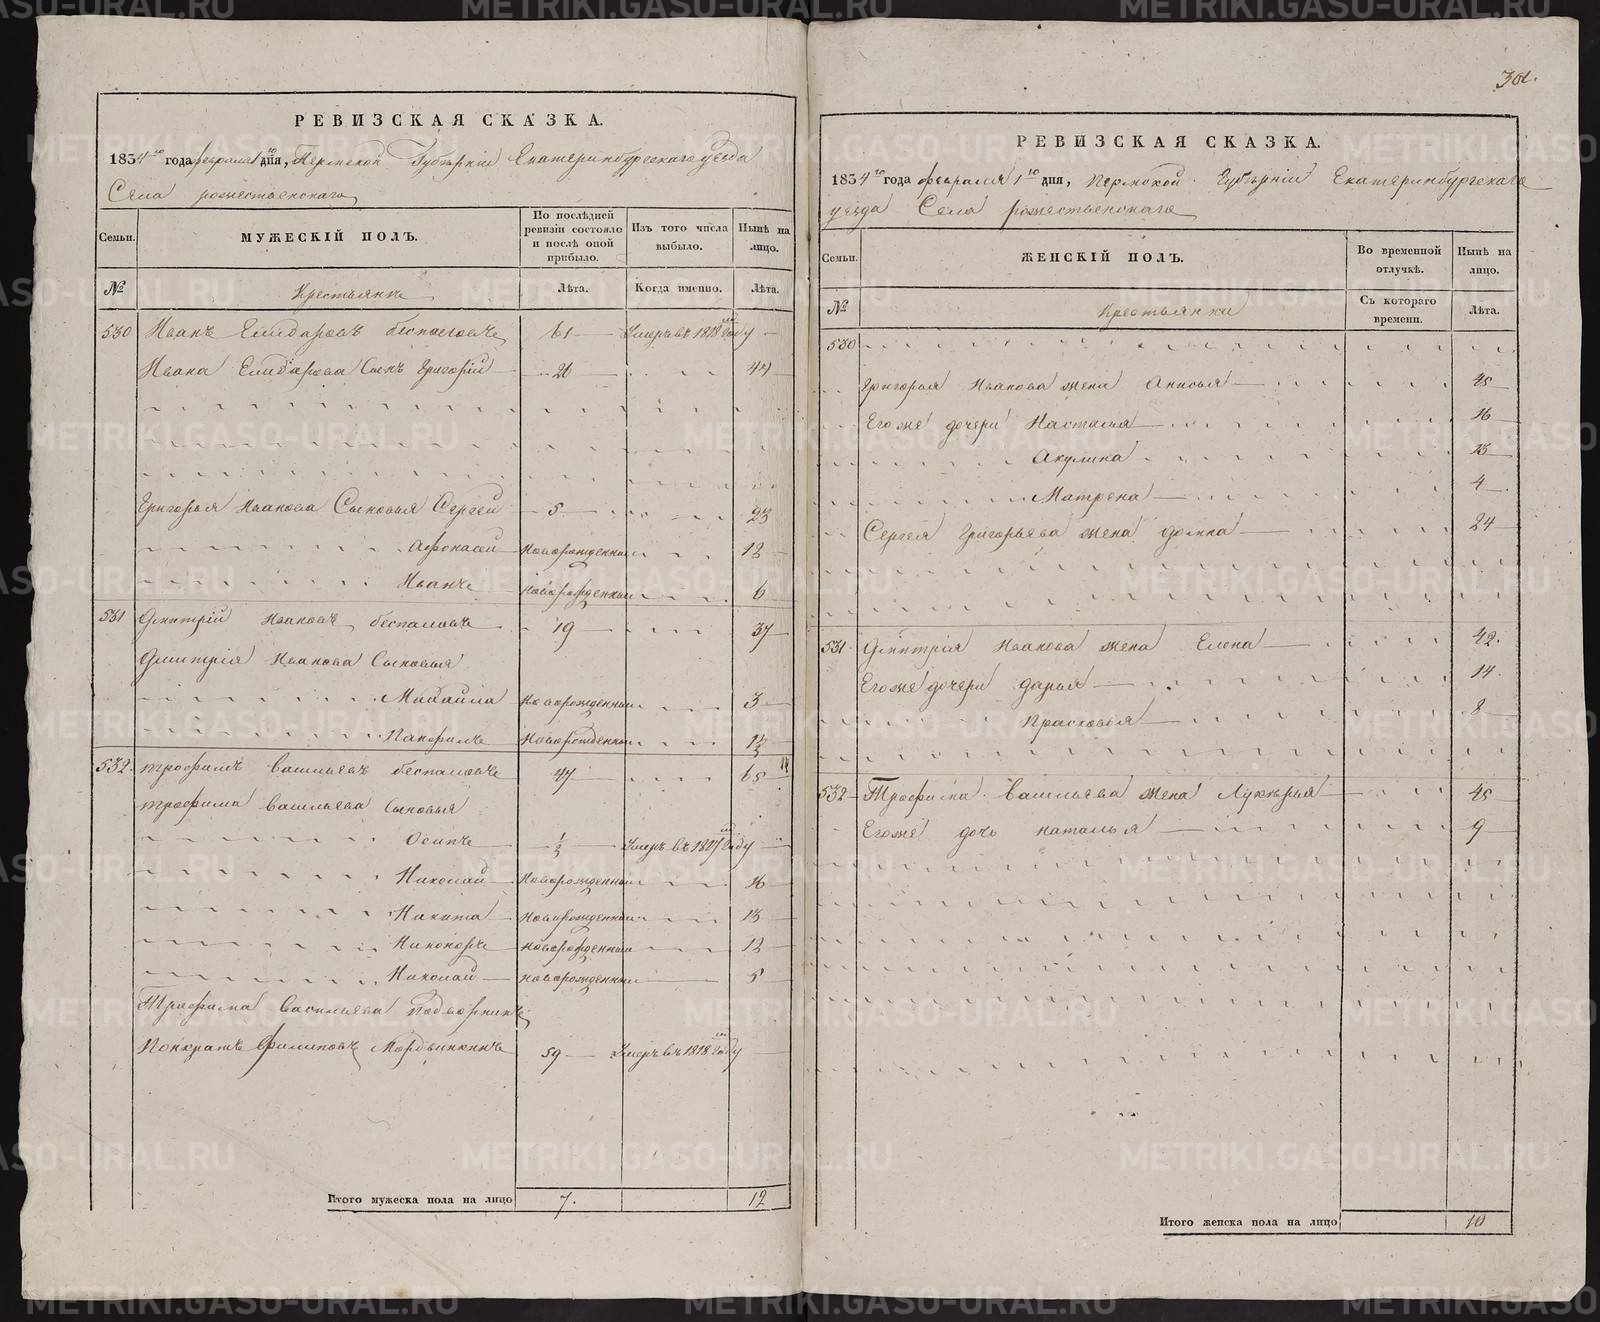 301.
РЕВИЗСКАЯ СКАЗКА.
1834го года февраля 1го дня, Пермской Губѣрніи Екатеринбургскаго уезда
Села рожественскаго
Семьи.
МУЖЕСКІЙ ПОЛЪ.
По послѣдней ревизіи состояло и послѣ оной прибыло.
Изъ того числа выбыло.
Нынѣ на лицо.
№
Крестьянъ
Лѣта.
Когда именно.
Лѣта.
530 Иванъ Елизаровъ беспаловъ 61 Умеръ въ 1818 году
Ивана Елизарова Сынъ Григорій 26 44
Григорья Иванова Сыновья Сергей 5 23
Афонасей Новорожденныи 12
Иванъ новорожденныи 6
531 Дмитрій Ивановъ беспаловъ 19 37
Дмитрія Иванова Сыновья
Михайла Новорожденныи 3
Панфилъ Новорожденныи 1½
532. трофимъ васильевъ беспаловъ 47 65
трофима васильева Сыновья
Осипъ ½ Умеръ въ 1827 году
Николай Новорожденныи 16
Никита Новорожденныи 13
Никоноръ новорожденныи 12
Николай новорожденныи 5
Трофима васильева Подворникъ
Понкратъ Филиповъ Мордвинкинъ 59 Умеръ въ 1818 году
Итого мужеска пола на лицо 7. 12
РЕВИЗСКАЯ СКАЗКА.
1834го года февраля 1го дня, пермской Губѣрніи Екатеринбургскаго
уезда Села рожественскаго
Семьи.
ЖЕНСКІЙ ПОЛЪ.
Во временной отлучкѣ.
Нынѣ на лицо.
№
Крестьянки
Съ котораго времени.
Лѣта.
530
Григорья Иванова жена Анисья 45
Его же дочери Настасья 16
Акулина 13
Матрена 4
Сергея Григорьева жена домна 24
531 Дмитрія Иванова жена Елена 42.
Его же дочери дарья 14.
Прасковья 8
532 Трофима васильева жена Лукерья 45
Его же дочь наталья 9
Итого женска пола на лицо 10
METRIKI.GASO-URAL.RU